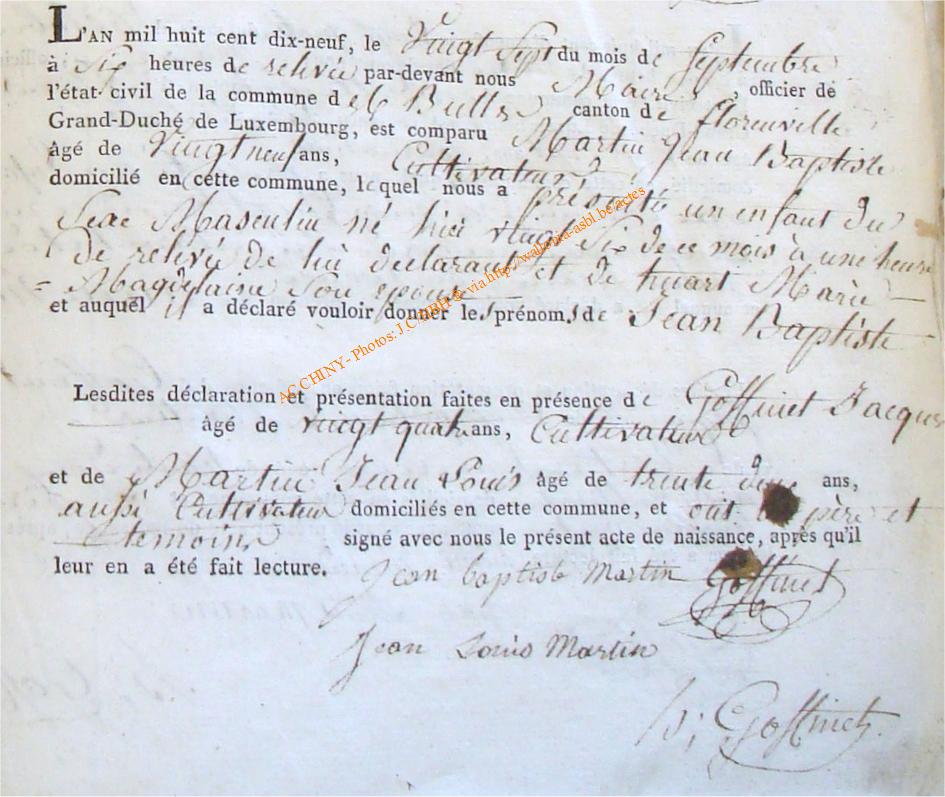 L'AN mil huit cent dix-neuf, le Vingt Sept du mois de Septembre
à Six heures de relevée par-devant nous Maire, officier de
l'état civil de la commune d es Bulles canton de florenville
Grand-Duché de Luxembourg, est comparu Martin Jean Baptiste
âgé de Vingt neuf ans, Cultivateur
domicilié en cette commune, lequel nous a présenté un enfant du
Sexe Masculin né hier vingt Six de ce mois à une heure
de relevée de lui déclarant et de huart Marie
= Magdelaine Son epouse
et auquel il a déclaré vouloir donner les prénoms de Jean Baptiste
Lesdites déclaration et présentation faites en présence de Goffinet Jacques
âgé de vingt quatre ans, Cultivateur
et de Martin Jean Louis âgé de trente deux ans,
aussi Cultivateur domiciliés en cette commune, et ont père et
temoins signé avec nous le présent acte de naissance, après qu'il
leur en a été fait lecture. Jean baptiste Martin Goffinet
Jean Louis Martin
Goffinet
AC CHINY - Photos: J.C. via http://wallonia-asbl.be/actes